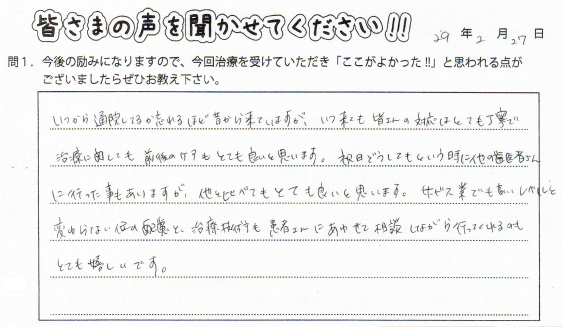 皆さまの声を聞かせてください!!
29 年 2 月 27 日
問1. 今後の励みになりますので、今回治療を受けていただき「ここがよかった!!」と思われる点が
ございましたらぜひお教え下さい。
いつから通院してるか忘れるほど昔から来ていますが、いつ来ても皆さんの対応はとても丁寧で
治療に関しても前後のケアもとても良いと思います。祝日どうしてもという時に他の歯医者さん
に行った事もありますが、他と比べてもとても良いと思います。サービス業でも高いレベルと
変わらない位の配慮と、治療も患者さんにあわせて相談しながら行ってくれるのも
とても嬉しいです。